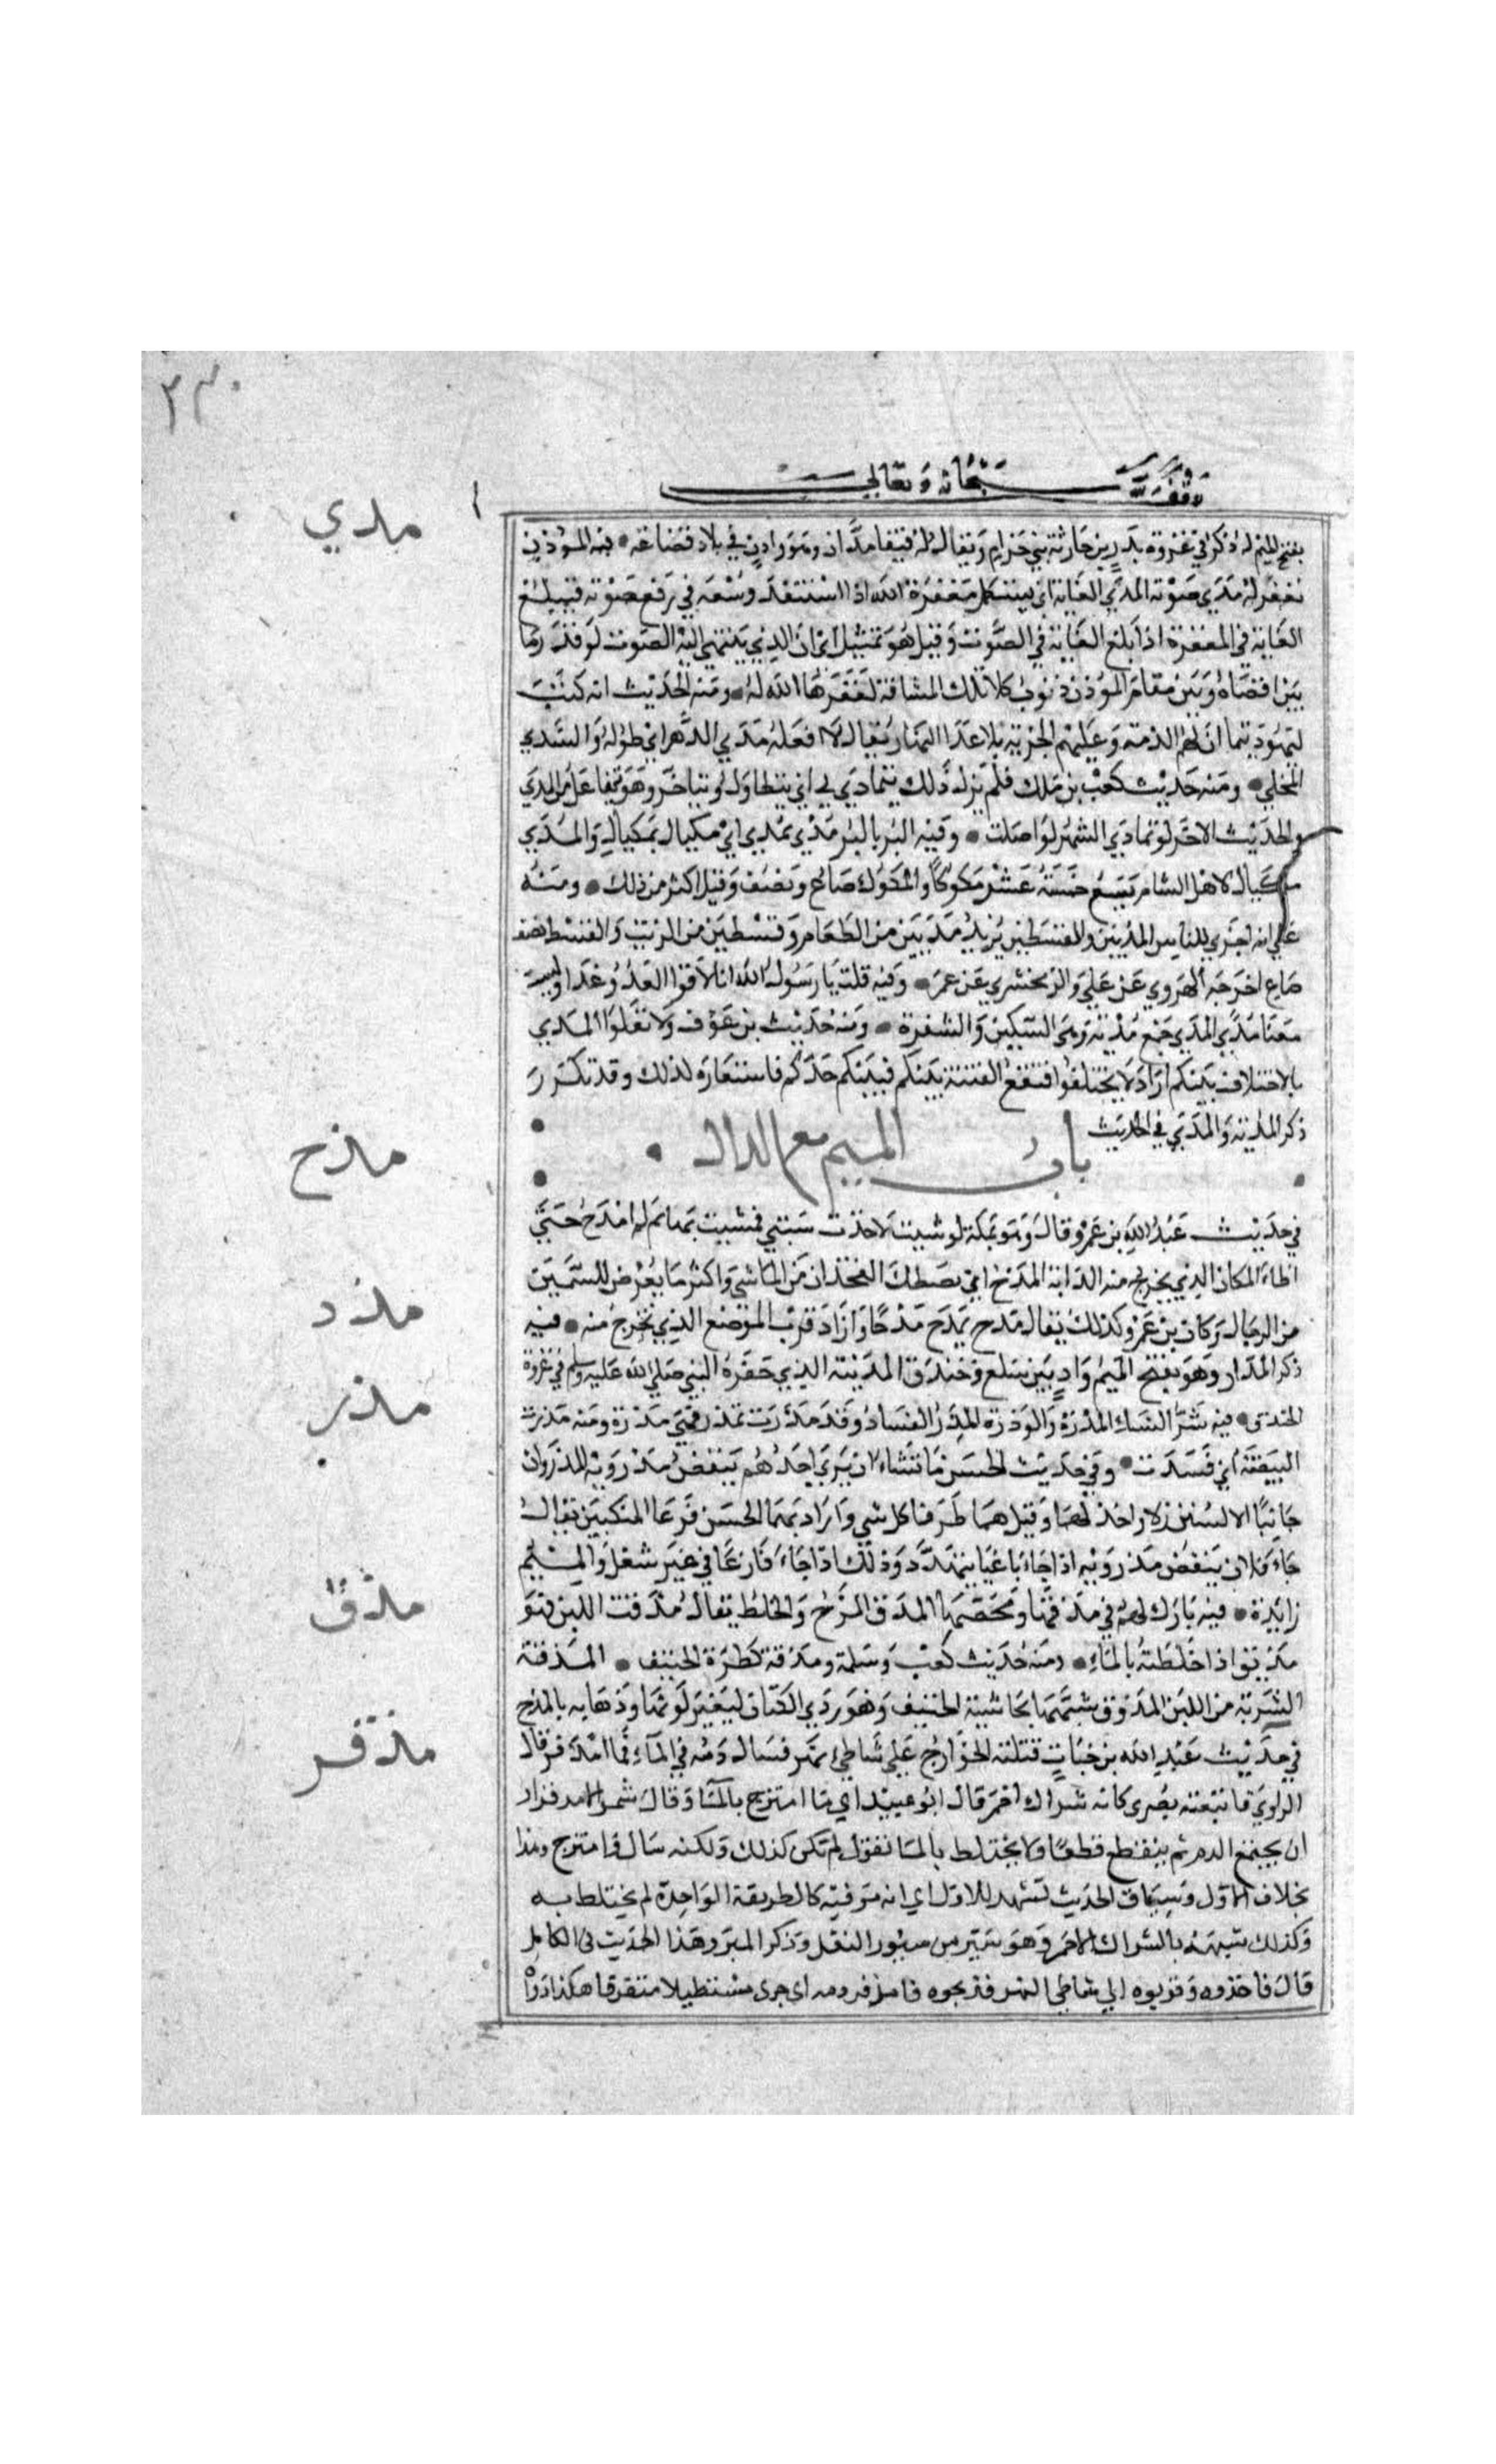 ٣٣٠
وقف لله سبحانه وتعالى
بفتح الميم له ذكر في غزوة بد زيد بن حارثة بني جزام ويقال له فيفا مدان وهو واد في بلاد قضاعة • فيه الموذن
مدي
يغفر له مدي صوته المدي الغاية اي يستكمل مغفرة الله اذا استنفد وسعه في رفع صوته فيبلغ
الغاية في المغفرة اذا بلغ الغاية في الصوت وقيل هو تمثيل اي ان الذي ينتهي اليه الصوت لو قدر ما
بين اقصاه وبين مقام الموذن ذنوب تلك المسافة لغفرها الله له • ومنه الحديث انه كتب
ليهود تيما ان لهم الذمة وعليهم الجزية بلا عدا النهار يقال لا افعله مدي الدهر اي طوله والسدي
المخلي • ومنه حديث كعب بن ملك فلم يزل ذلك يتمادي بي اي يتطاول ويتاخر وهو يتفاعل من المدي
والحديث الاخر لو تمادي الشهر لواصلت • وفيه البر بالبر مدي بمدي اي مكيال بمكيال والمدي
مكيال لاهل الشام يسع خمسة عشر مكوكا والمكوك صاع ونصف وقيل اكثر من ذلك • ومنه
علي انه اجري للناس المديين والقسطين يريد مديين من الطعام وقسطين من الزيت والقسط نصف
صاع اخرجه الهروي عن علي والزمخشري عن عمر • وفيه قلت يا رسول الله انا لاقوا العدو غدا وليست
معنا مدي المدي جمع مدية وهي السكين والشفرة • ومنه حديث بن عوف ولا تفلوا المدي
بالاختلاف بينكم اراد لا يختلفوا فتقع الفتنة بينكم فيثلم حدكم فاستعاره لذلك وقد تكرر
ذكر المدية والمدي في الحديث
باب الميم مع الدال
مذح
في حديث عبد الله بن عمرو قال وهو بمكة لو شيت لاخذت سبتي فمشيت بها ثم لم امذح حتي
اطا المكان الذي يخرج منه الدابة المذح ان يصطك الفخذان من الماشي واكثر ما يعرض للسمين
من الرجال وكان بن عمرو كذلك يقال مذح يمذح مذحا واراد قرب الموضع الذي تخرج منه • فيه
مذد
ذكر المذاد وهو بفتح الميم واد بين سلع وخندق المدينة الذي حفره النبي صلي الله عليه وسلم في غزوة
مذر
الخندق • فيه شر النساء المذرة والوذرة المذر الفساد وقد مذرت تمذر فهي مذرة ومنه مذرت
البيضة اي فسدت • وفي حديث الحسن ما تشاء ان يري احدهم ينفض مذرويه المذروان
جانبا الاليتين ولا واحد لهما وقيل هما طرفا كل شي واراد بهما الحسن فرعا المنكبين يقال
جاء فلان ينفض مذرويه اذا جاء باغيا يتهدد وذلك اذا جاء فارغا في غير شغل والميم
مذق
زايدة • فيه بارك لهم في مذقها ومحضها المذق المزج والخلط يقال مذقت اللبن فهو
مذيق اذا خلطته بالماء • ومنه حديث كعب وسلمة ومذقة كطرة الخنيف • المذقة
الشربة من اللبن الممذوق شبهها بحاشية الخنيف وهو ردي الكتان ليغير لونها وذهابه بالمزج
مذقر
في حديث عبد الله بن خباب قتلته الخوارج علي شاطي نهر فسال دمه في الماء فما امذقر قال
الراوي فاتبعته بصري كانه شراك احمر قال ابو عبيد اي ما امتزج بالماء وقال شمر الامذقرار
ان يجتمع الدم ثم ينقطع قطعا ولا يختلط بالماء تقول لم تكن كذلك ولكنه سال وامتزج وهذا
بخلاف الاول وسياق الحديث تشهد للاول اي انه مر فيه كالطريقة الواحدة لم يختلط به
وكذلك شبهه بالشراك الاحمر وهو سير من سيور النعل وذكر المبرد هذا الحديث في الكامل
قال فاخذوه وقربوه الي شاطي النهر فذبحوه فامذقر دمه اي جري مستطيلا متفرقا هكذا رواه